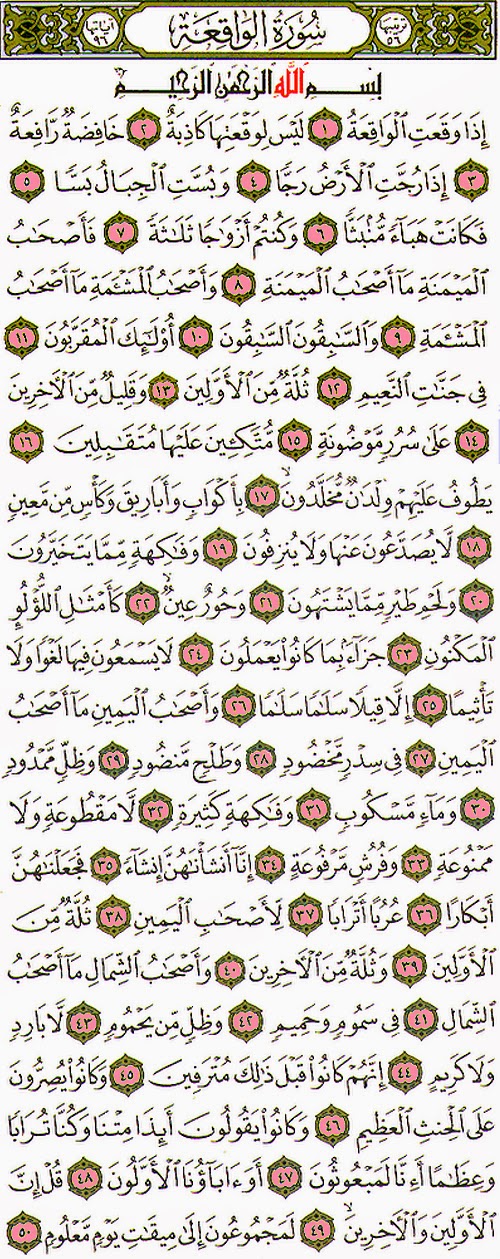 ترتيبها ٥٦ سُورَةُ الوَاقِعَةِ آياتها ٩٦
بِسْمِ اللَّهِ الرَّحْمَٰنِ الرَّحِيمِ
إِذَا وَقَعَتِ ٱلْوَاقِعَةُ ١ لَيْسَ لِوَقْعَتِهَا كَاذِبَةٌ ٢ خَافِضَةٌ رَّافِعَةٌ
٣ إِذَا رُجَّتِ ٱلْأَرْضُ رَجًّا ٤ وَبُسَّتِ ٱلْجِبَالُ بَسًّا ٥
فَكَانَتْ هَبَآءً مُّنۢبَثًّا ٦ وَكُنتُمْ أَزْوَٰجًا ثَلَٰثَةً ٧ فَأَصْحَٰبُ
ٱلْمَيْمَنَةِ مَآ أَصْحَٰبُ ٱلْمَيْمَنَةِ ٨ وَأَصْحَٰبُ ٱلْمَشْـَٔمَةِ مَآ أَصْحَٰبُ
ٱلْمَشْـَٔمَةِ ٩ وَٱلسَّٰبِقُونَ ٱلسَّٰبِقُونَ ١٠ أُو۟لَٰٓئِكَ ٱلْمُقَرَّبُونَ ١١
فِى جَنَّٰتِ ٱلنَّعِيمِ ١٢ ثُلَّةٌ مِّنَ ٱلْأَوَّلِينَ ١٣ وَقَلِيلٌ مِّنَ ٱلْـَٔاخِرِينَ
١٤ عَلَىٰ سُرُرٍ مَّوْضُونَةٍ ١٥ مُّتَّكِـِٔينَ عَلَيْهَا مُتَقَٰبِلِينَ ١٦
يَطُوفُ عَلَيْهِمْ وِلْدَٰنٌ مُّخَلَّدُونَ ١٧ بِأَكْوَابٍ وَأَبَارِيقَ وَكَأْسٍ مِّن مَّعِينٍ
١٨ لَّا يُصَدَّعُونَ عَنْهَا وَلَا يُنزِفُونَ ١٩ وَفَٰكِهَةٍ مِّمَّا يَتَخَيَّرُونَ
٢٠ وَلَحْمِ طَيْرٍ مِّمَّا يَشْتَهُونَ ٢١ وَحُورٌ عِينٌ ٢٢ كَأَمْثَٰلِ ٱللُّؤْلُؤِ
ٱلْمَكْنُونِ ٢٣ جَزَآءًۢ بِمَا كَانُوا۟ يَعْمَلُونَ ٢٤ لَا يَسْمَعُونَ فِيهَا لَغْوًا وَلَا
تَأْثِيمًا ٢٥ إِلَّا قِيلًا سَلَٰمًا سَلَٰمًا ٢٦ وَأَصْحَٰبُ ٱلْيَمِينِ مَآ أَصْحَٰبُ
ٱلْيَمِينِ ٢٧ فِى سِدْرٍ مَّخْضُودٍ ٢٨ وَطَلْحٍ مَّنضُودٍ ٢٩ وَظِلٍّ مَّمْدُودٍ
٣٠ وَمَآءٍ مَّسْكُوبٍ ٣١ وَفَٰكِهَةٍ كَثِيرَةٍ ٣٢ لَّا مَقْطُوعَةٍ وَلَا
مَمْنُوعَةٍ ٣٣ وَفُرُشٍ مَّرْفُوعَةٍ ٣٤ إِنَّآ أَنشَأْنَٰهُنَّ إِنشَآءً ٣٥ فَجَعَلْنَٰهُنَّ
أَبْكَارًا ٣٦ عُرُبًا أَتْرَابًا ٣٧ لِّأَصْحَٰبِ ٱلْيَمِينِ ٣٨ ثُلَّةٌ مِّنَ
ٱلْأَوَّلِينَ ٣٩ وَثُلَّةٌ مِّنَ ٱلْـَٔاخِرِينَ ٤٠ وَأَصْحَٰبُ ٱلشِّمَالِ مَآ أَصْحَٰبُ
ٱلشِّمَالِ ٤١ فِى سَمُومٍ وَحَمِيمٍ ٤٢ وَظِلٍّ مِّن يَحْمُومٍ ٤٣ لَّا بَارِدٍ
وَلَا كَرِيمٍ ٤٤ إِنَّهُمْ كَانُوا۟ قَبْلَ ذَٰلِكَ مُتْرَفِينَ ٤٥ وَكَانُوا۟ يُصِرُّونَ
عَلَى ٱلْحِنثِ ٱلْعَظِيمِ ٤٦ وَكَانُوا۟ يَقُولُونَ أَئِذَا مِتْنَا وَكُنَّا تُرَابًا
وَعِظَٰمًا أَءِنَّا لَمَبْعُوثُونَ ٤٧ أَوَءَابَآؤُنَا ٱلْأَوَّلُونَ ٤٨ قُلْ إِنَّ
ٱلْأَوَّلِينَ وَٱلْـَٔاخِرِينَ ٤٩ لَمَجْمُوعُونَ إِلَىٰ مِيقَٰتِ يَوْمٍ مَّعْلُومٍ ٥٠